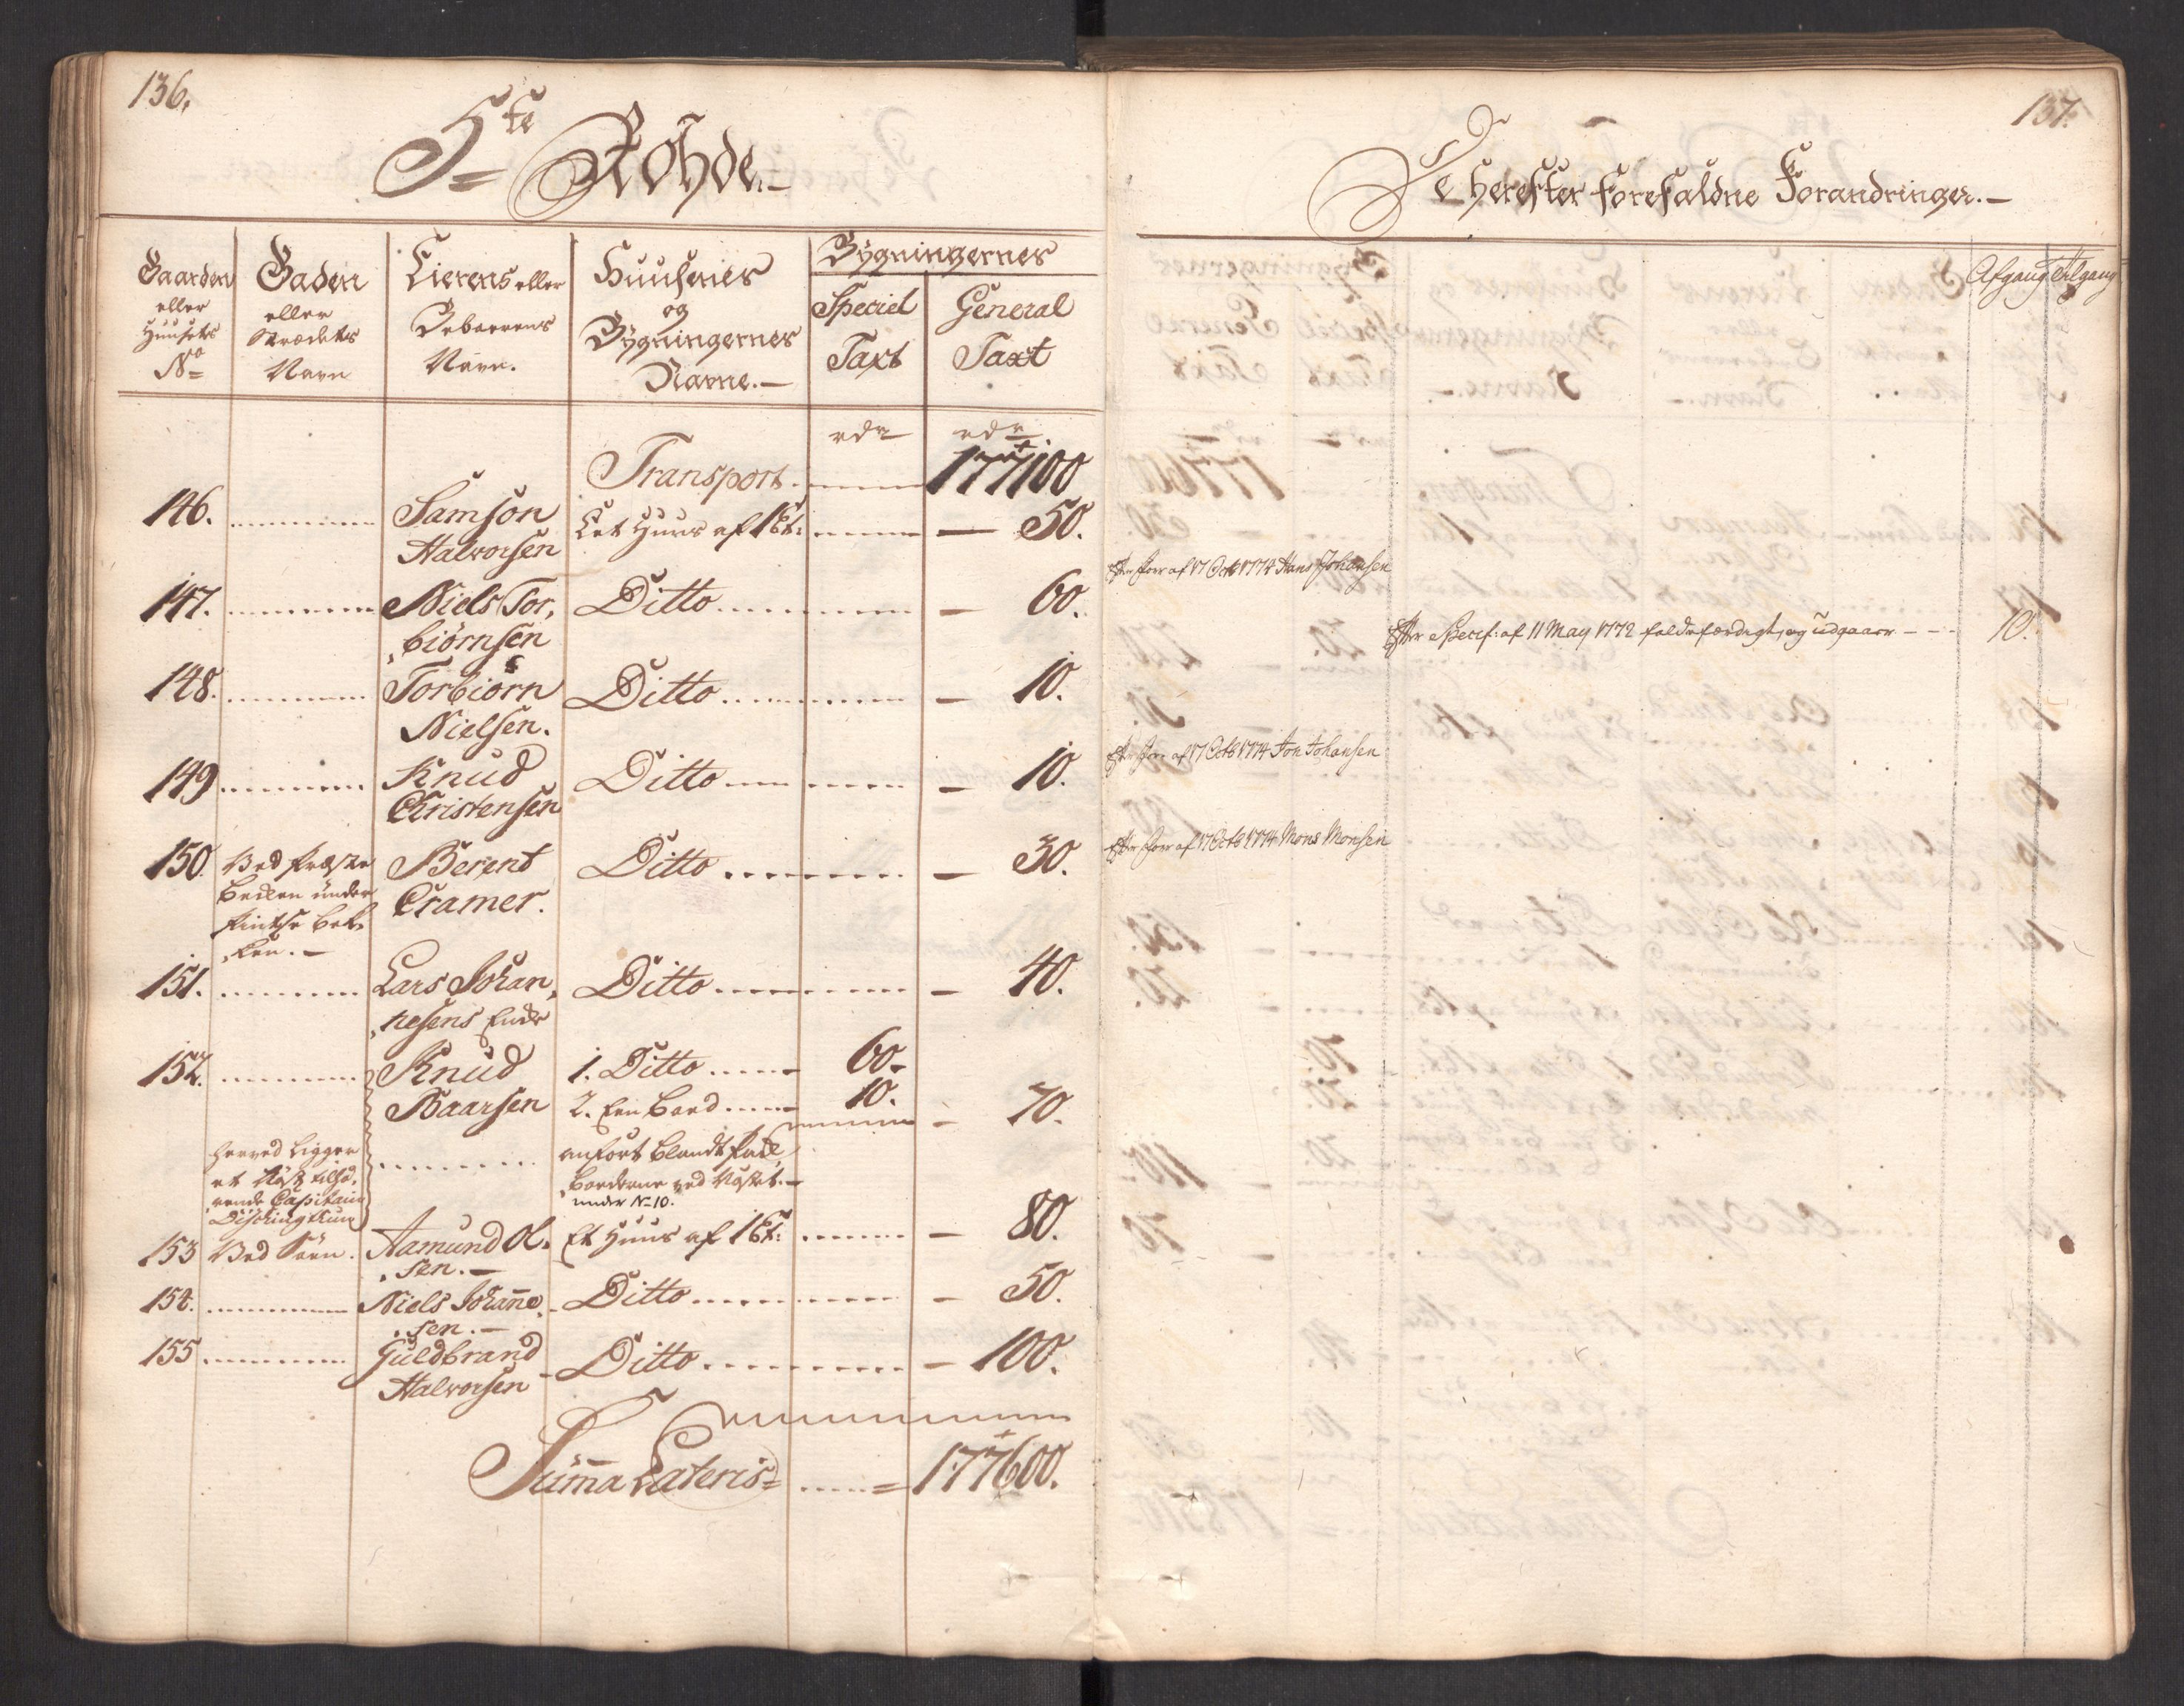 136.
5te Rohde.
Gaarden eller Huusets No
Gaden eller Strædets Navn
Eierens eller Beboerens Navn.
Huusenes og Bygningernes Navne.
Bygningernes
Speciel Taxt
General Taxt
rdr rdr
Transport. 177100
146. Samson Halvorsen Eet Huus af 1 Et: 50.
147. Niels Tor, biörnsen Ditto 60.
148. Torbiörn Nielsen. Ditto 10.
149 Knud Christensen Ditto 10.
150. Ved Berent Cramer. Ditto 30.
151. Lars Johan, nesens Enke Ditto 40.
152. Knud Baarsen 1. Ditto 60.
2. Een Boed 10. 70.
herved ligger et Nøst tilhö, rende Capitain
anfört blandt boederne ved Nøstet.
under No 10.
153 Ved Söen. Aamund Ol, sen. Et Huus af 1 Et: 80.
154. Niels Johanne, sen. Ditto 50.
155 Guldbrand Halvorsen Ditto 100.
Summa Lateris 177600.
137.
De herefter forefaldne Forandringer.
Afgang Tilgang
Efter forr af 17 Octb 1774 Hans Johansen
Efter Specif: af 11 May 1772 faldefærdigt, og udgaaer 10.
Efter forr af 17 Octb 1774 Jon Johansen
Efter forr af 17 Octb 1774 Mons Monsen